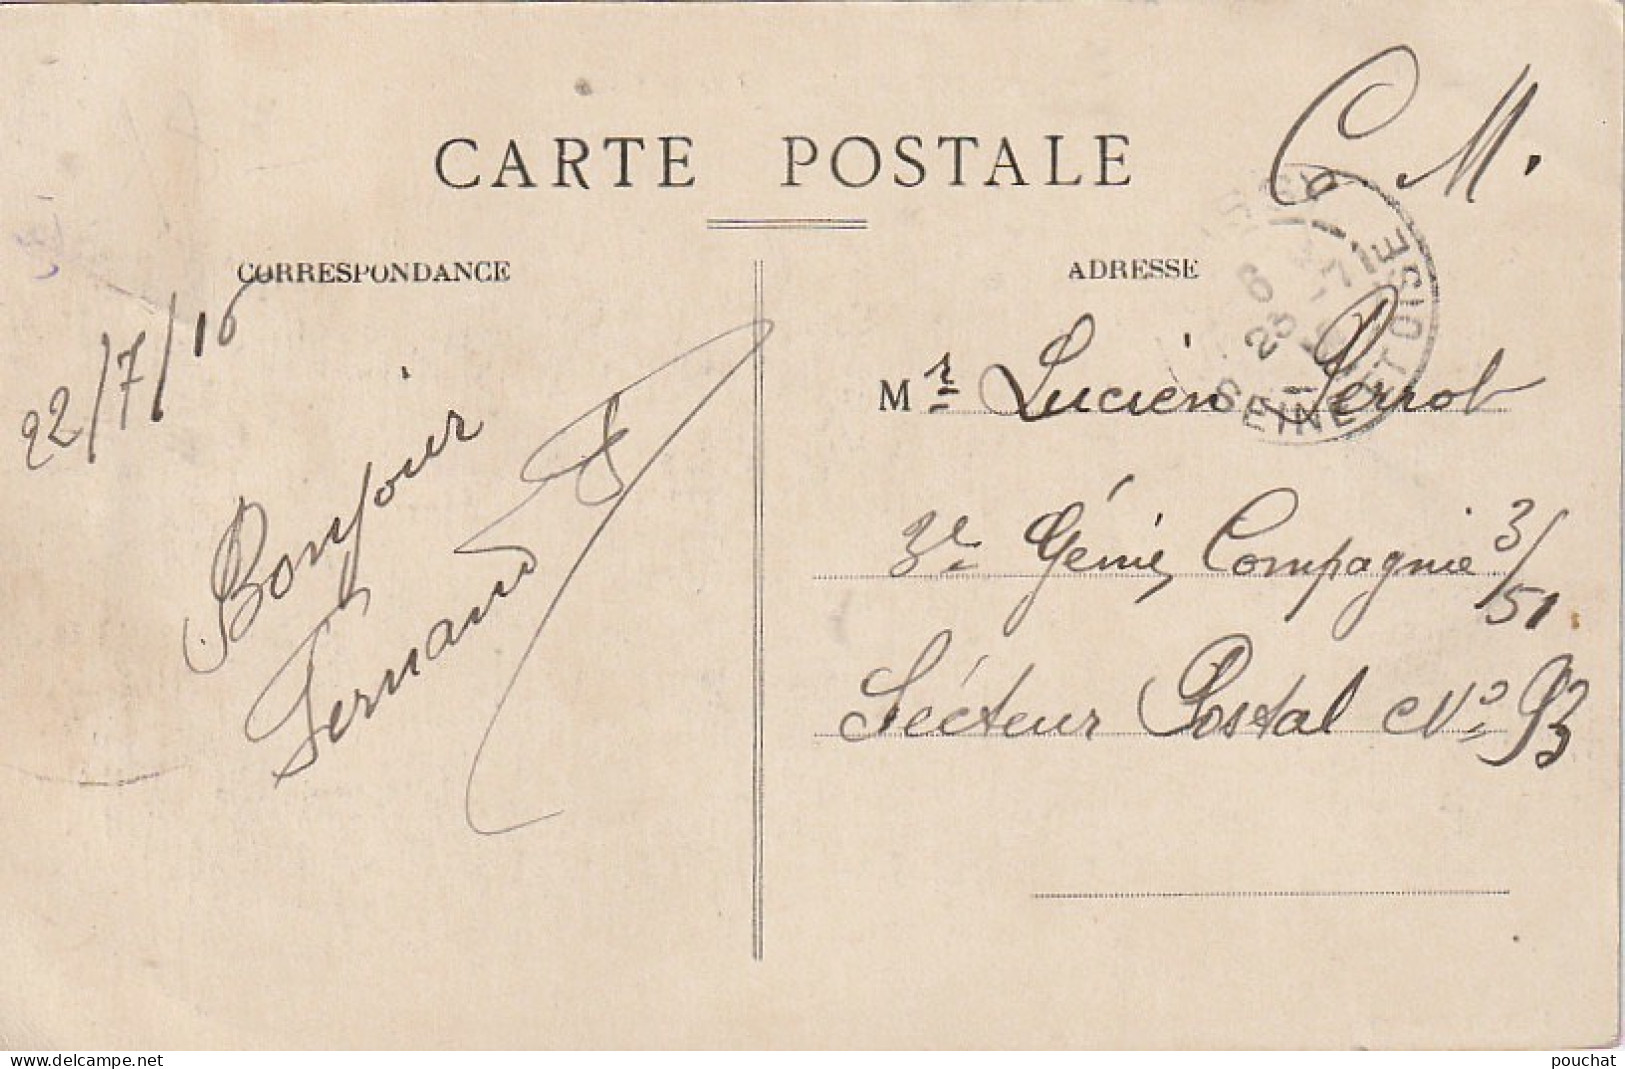 C. M.
CARTE POSTALE
CORRESPONDANCE
ADRESSE
22/7/16
Bonjour
Fernand
Mr Lucien Perrot
3e Génie, Compagnie 3/51
Sécteur Postal No 93
SEINE ET OISE
6
23 -7
www.delcampe.net
pouchat